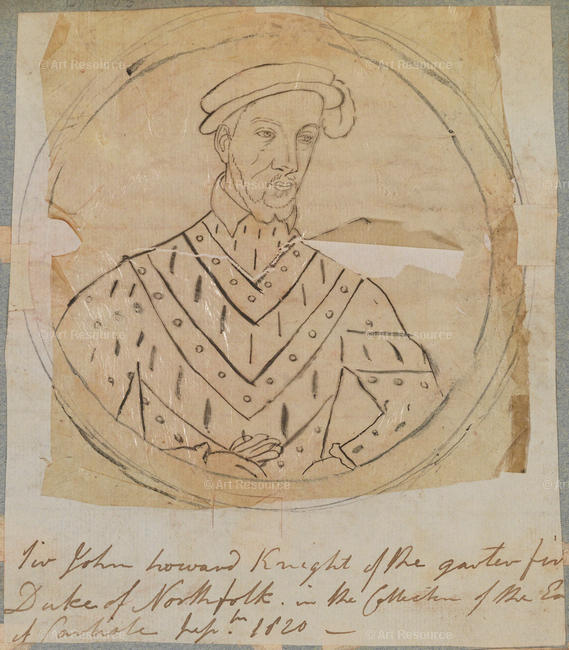 Sir John howard Knight of the garter fir
Duke of Northfolk. in the Collection of the Ea
of Carlisle Sepr. 1820 —
© Art Resource
© Art Resource
© Art Resource
© Art Resource
© Art Resource
© Art Resource
© Art Resource
© Art Resource
© Art Resource
© Art Resource
© Art Resource